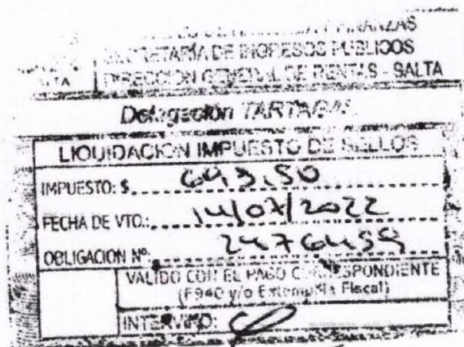 FINANZAS
SECRETARÍA DE INGRESOS PUBLICOS
DIRECCION GENERAL DE RENTAS - SALTA
Delegación TARTAGAL
LIQUIDACION IMPUESTO DE SELLOS
IMPUESTO: $ 643,50
FECHA DE VTO.: 14/07/2022
OBLIGACION Nº: 2476459
VALIDO CON EL PAGO CORRESPONDIENTE
(F940 y/o Estampilla Fiscal)
INTERVINO: